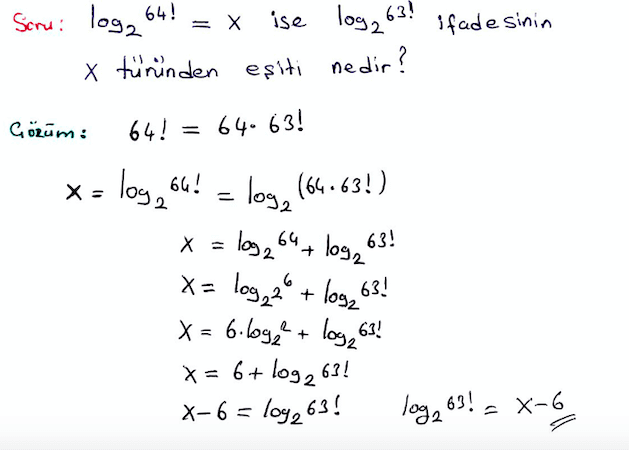 Soru: log₂64! = x ise log₂63! ifadesinin
x türünden eşiti nedir?
Çözüm: 64! = 64·63!
x = log₂64! = log₂(64·63!)
x = log₂64 + log₂63!
x = log₂2⁶ + log₂63!
x = 6·log₂2 + log₂63!
x = 6 + log₂63!
x-6 = log₂63! log₂63! = x-6